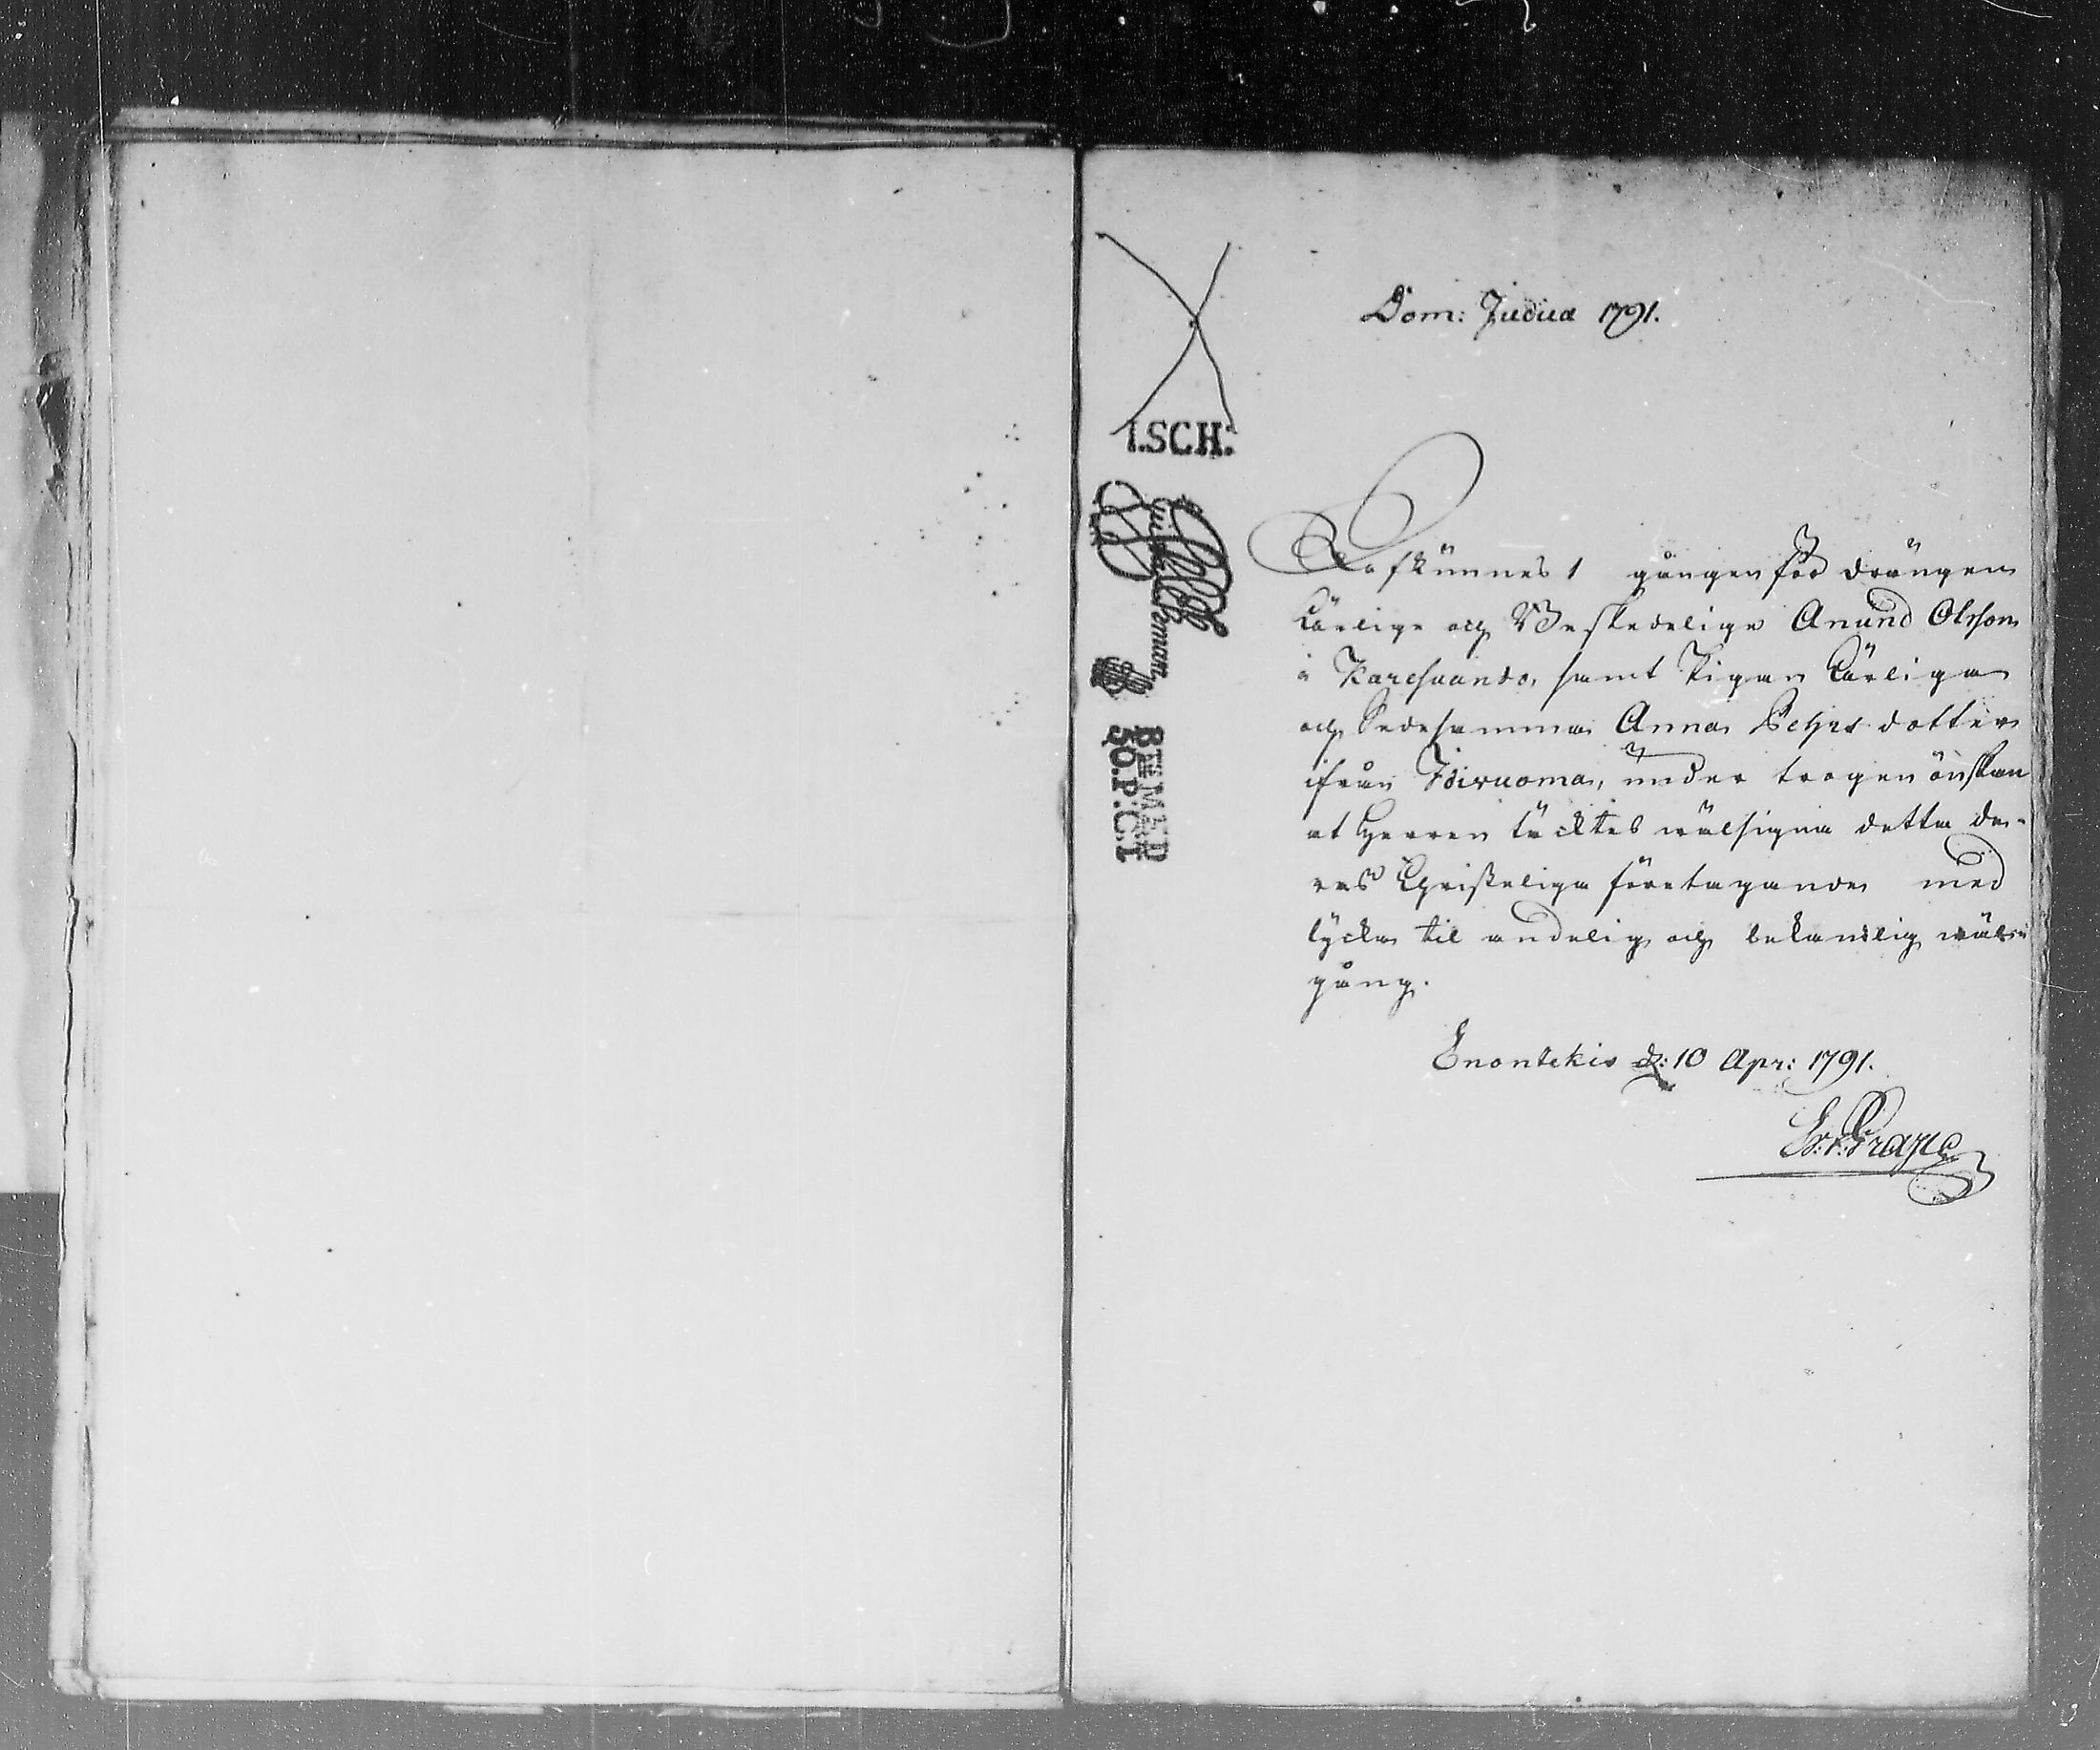 Dom: Judica 1791.
1.SCH:
BEMÅLD
50.P:C:T
Afkunnes 1 gången för drängen
Ärlige och Beskedelige Anund Olsson
i Karesuando, samt Pigan Ärliga
och Sedesamma Anna Pehrs dotter
ifrån Idivuoma, under trogen önskan
at Herren täcktes wälsigna detta de-
ras Christeliga företagande med
lycka til andelig och lekamlig wäl-
gång.
Enontekis d: 10 Apr: 1791.